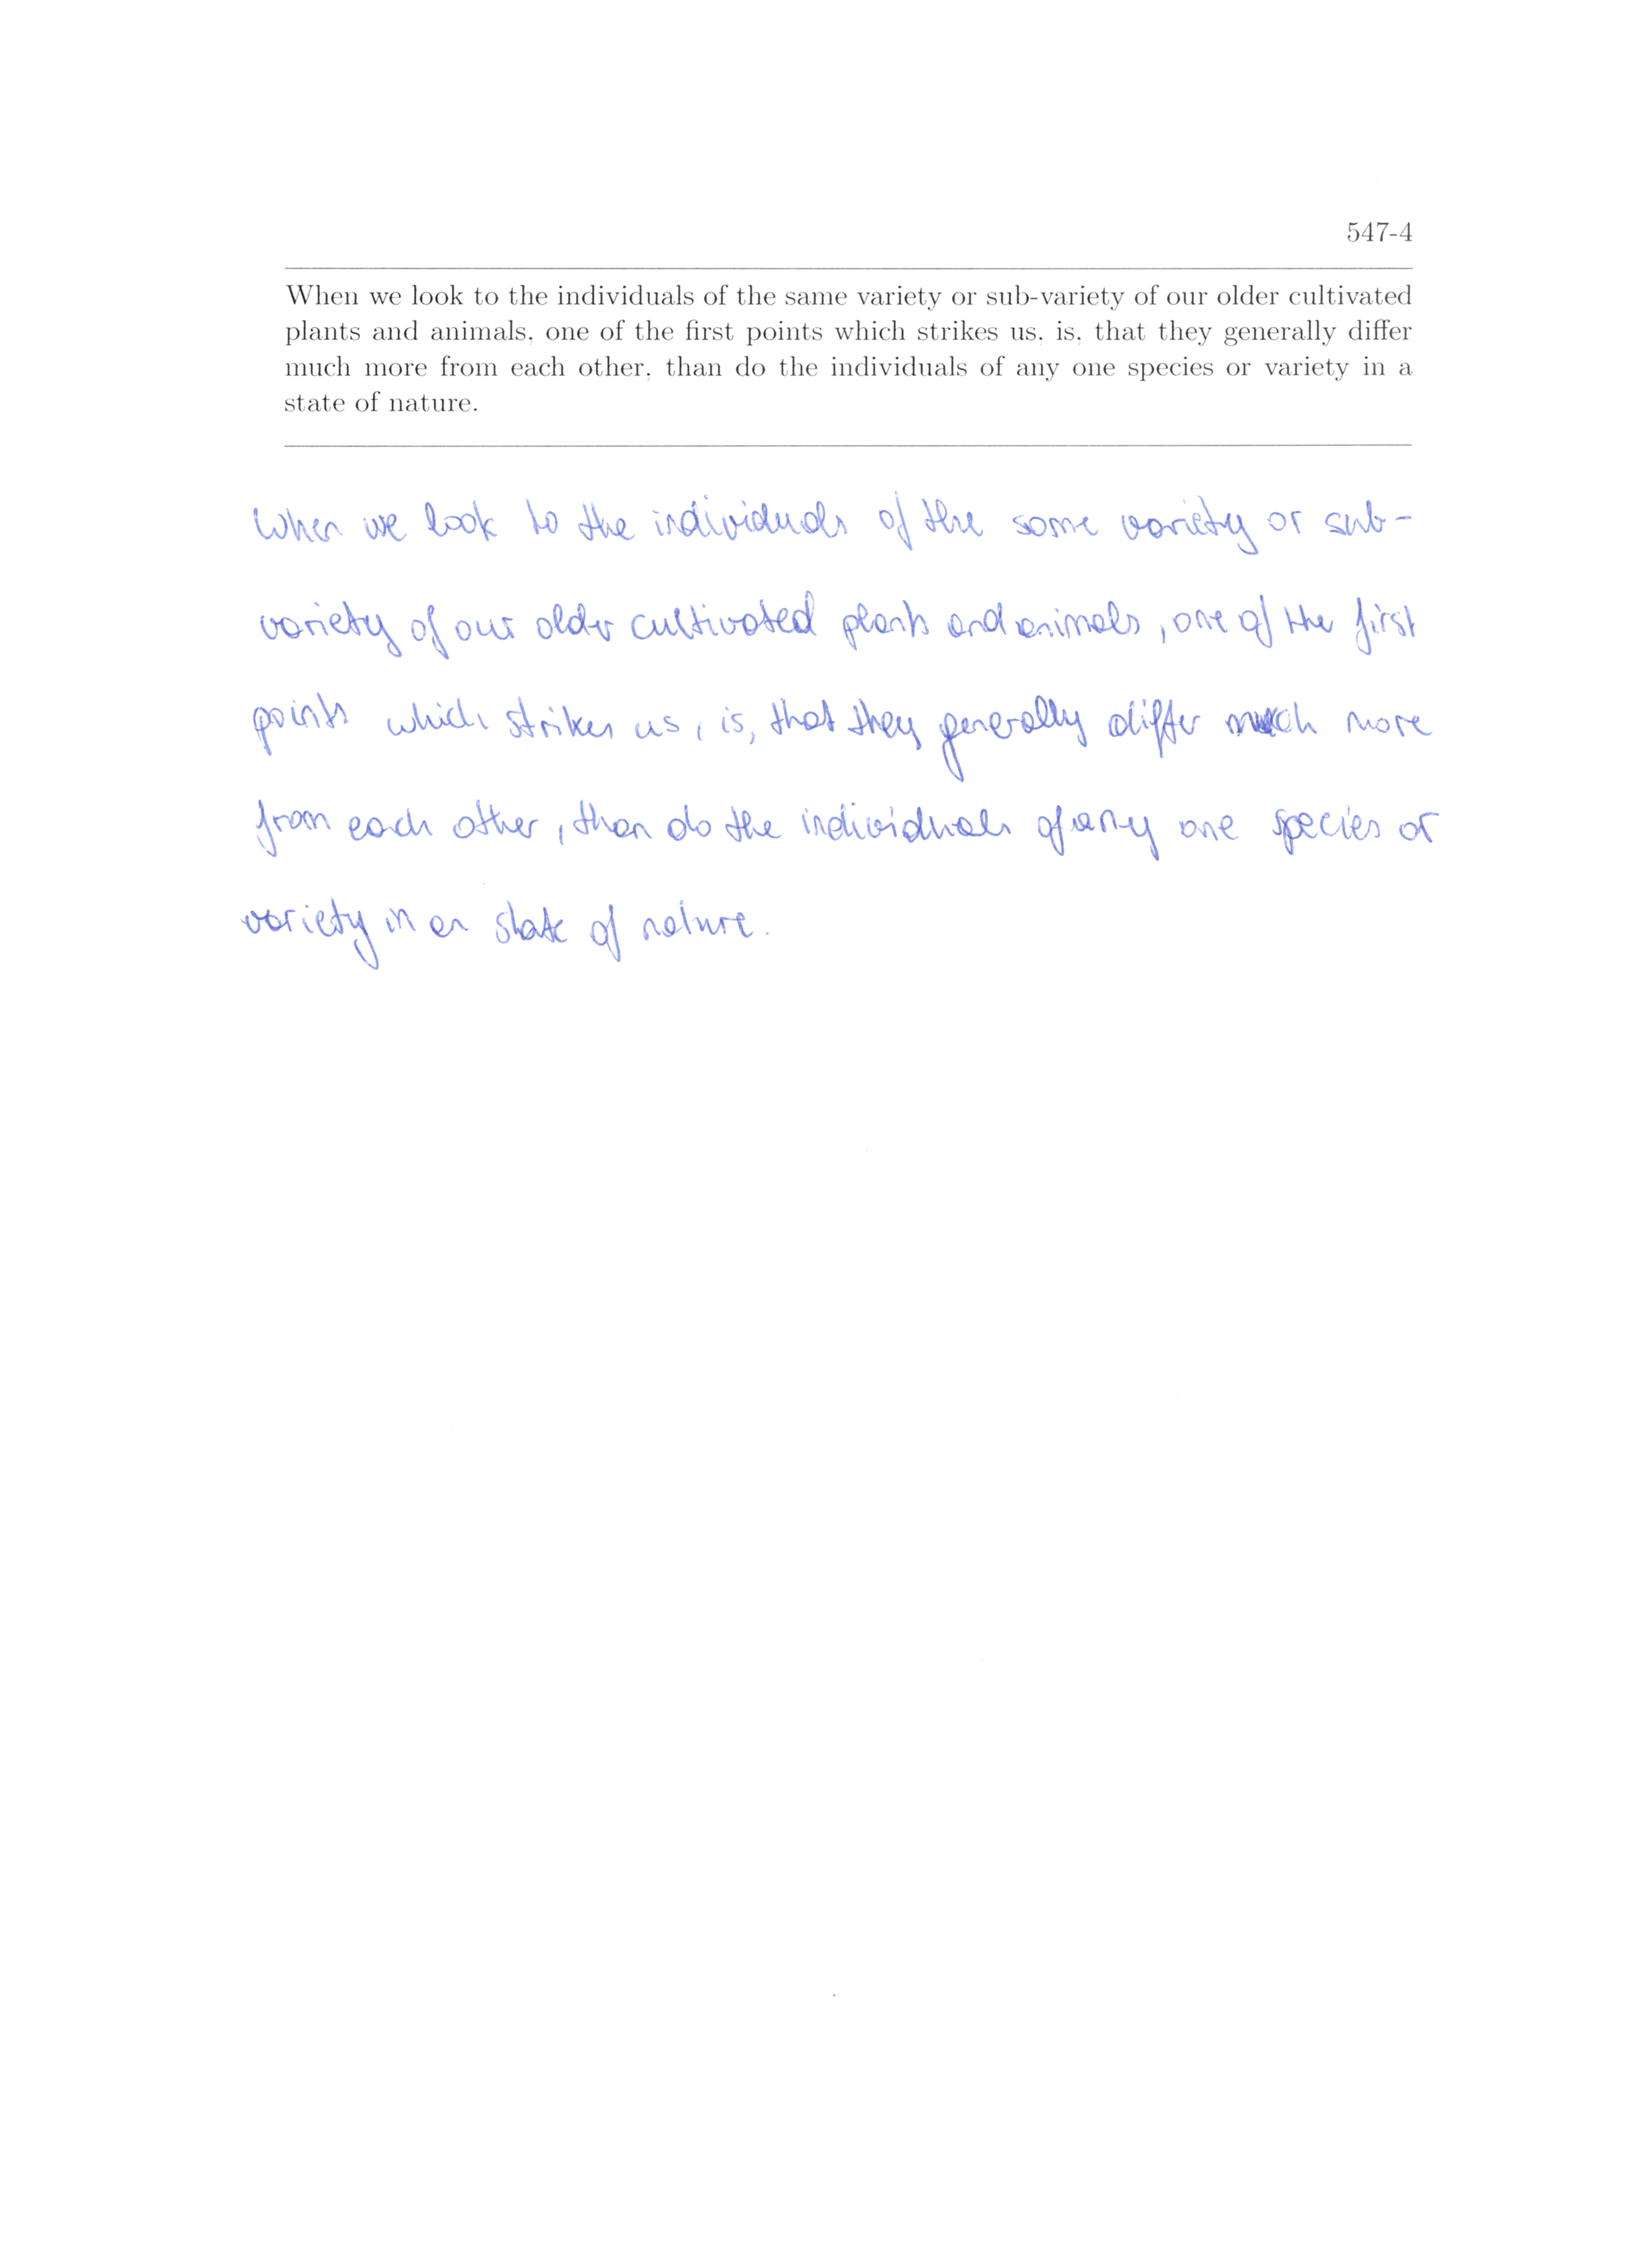 547-4
When we look to the individuals of the same variety or sub-variety of our older cultivated
plants and animals, one of the first points which strikes us, is, that they generally differ
much more from each other, than do the individuals of any one species or variety in a
state of nature.
When we look to the individuals of the same variety or sub-
variety of our older cultivated plants and animals, one of the first
points which strikes us, is, that they generally differ much more
from each other, than do the individuals of any one species or
variety in an state of nature.